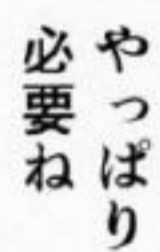 やっぱり
必要ね